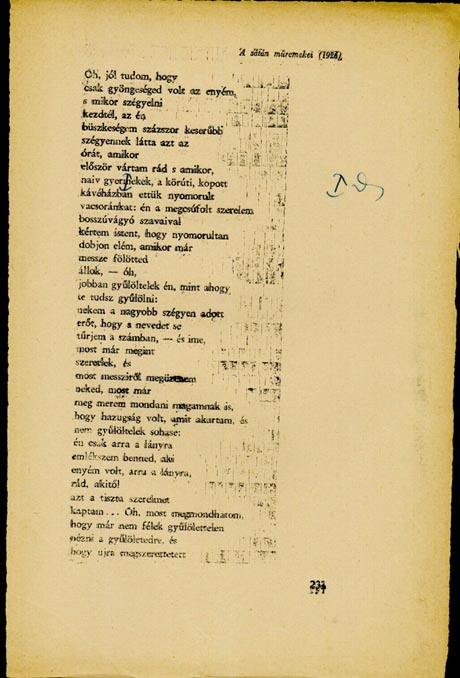 A sátán műremekei (1926)
Óh, jól tudom, hogy
csak gyöngeséged volt az enyém,
s mikor szégyelni
kezdtél, az én
büszkeségem százszor keserűbb
szégyennek látta azt az
órát, amikor
először vártam rád s amikor,
naiv gyermekek, a körúti, kopott
kávéházban ettük nyomorult
vacsoránkat: én a megcsúfolt szerelem
bosszúvágyó szavaival
kértem istent, hogy nyomorultan
dobjon elém, amikor már
messze fölötted
állok, — óh,
jobban gyűlöltelek én, mint ahogy
te tudsz gyűlölni:
nekem a nagyobb szégyen adott
erőt, hogy a nevedet se
tűrjem a számban, — és ime,
most már megint
szeretlek, és
most messziről megüzenem
neked, most már
meg merem mondani magamnak is,
hogy hazugság volt, amit akartam, és
nem gyűlöltelek sohase:
én csak arra a lányra
emlékszem benned, aki
enyém volt, arra a lányra,
rád, akitől
azt a tiszta szerelmet
kaptam... Óh, most megmondhatom,
hogy már nem félek gyűlölettelen
nézni a gyűlöletedre, és
hogy ujra megszerettetett
231